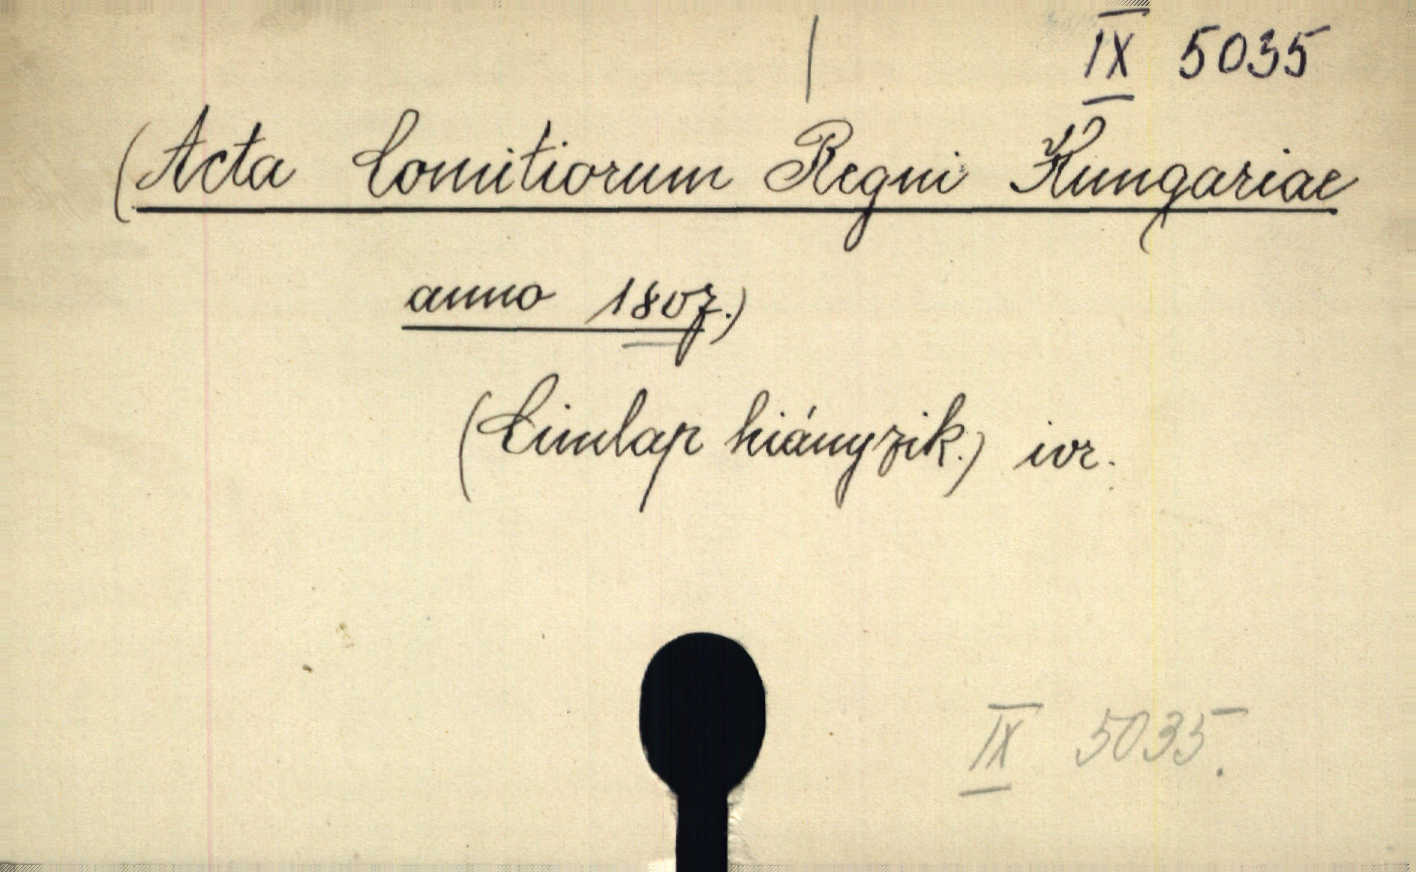 IX 5035
(Acta Comitiorum Regni Hungariae
anno 1807.)
(Cimlap hiányzik.) ivr.
IX 5035.